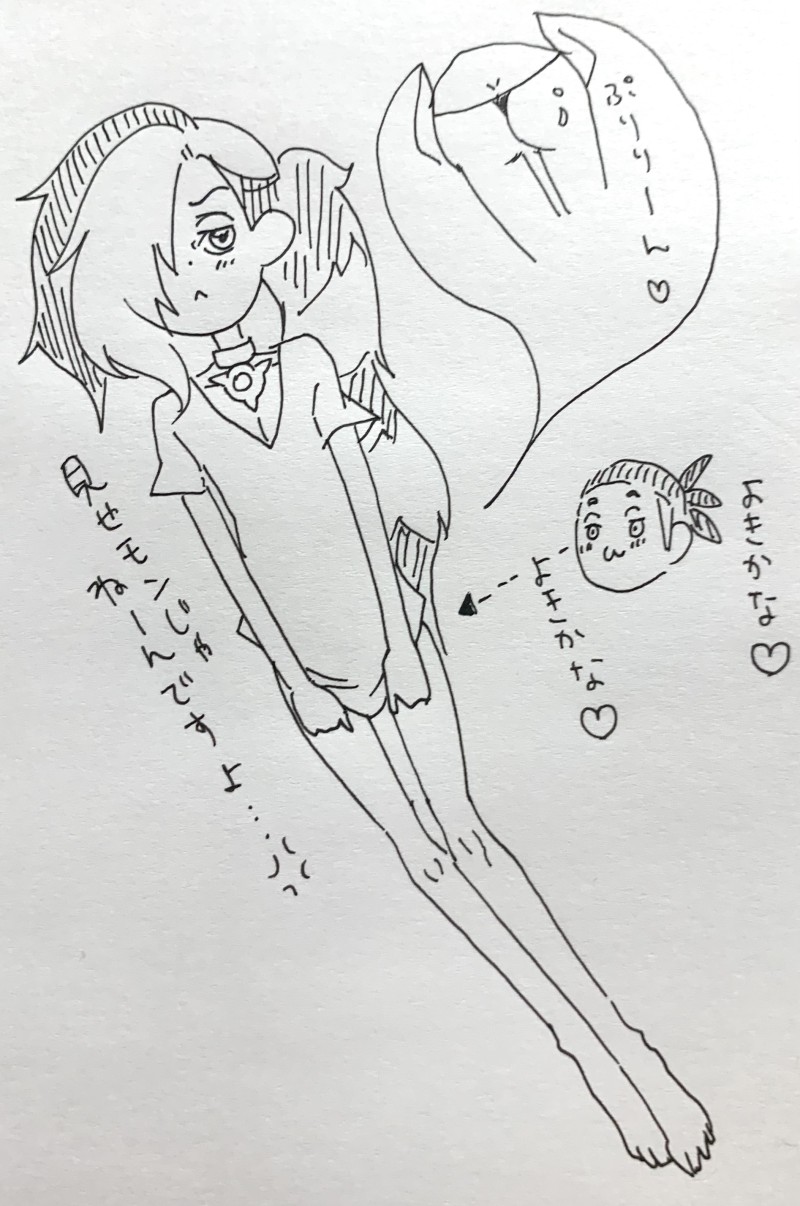 ぷりりーん♡
よきかな♡
よきかな♡
見せモンじゃ
ねーんですよ…